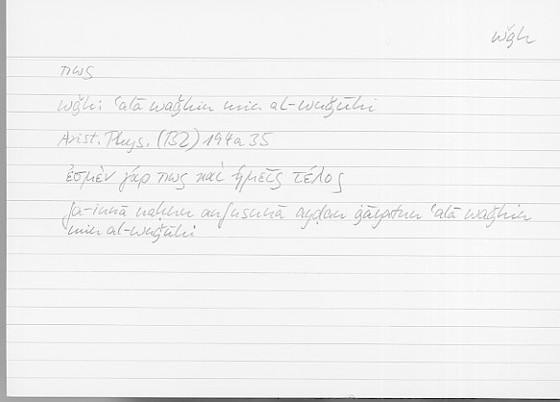 wǧh
πως
wǧh: ʿalā waǧhin min al-wuǧūhi
Arist. Phys. (B2) 194a35
ἐσμὲν γάρ πως καὶ ἡμεῖς τέλος
fa-innā naḥnu anfusunā ayḍan ġāyatun ʿalā waǧhin
min al-wuǧūhi